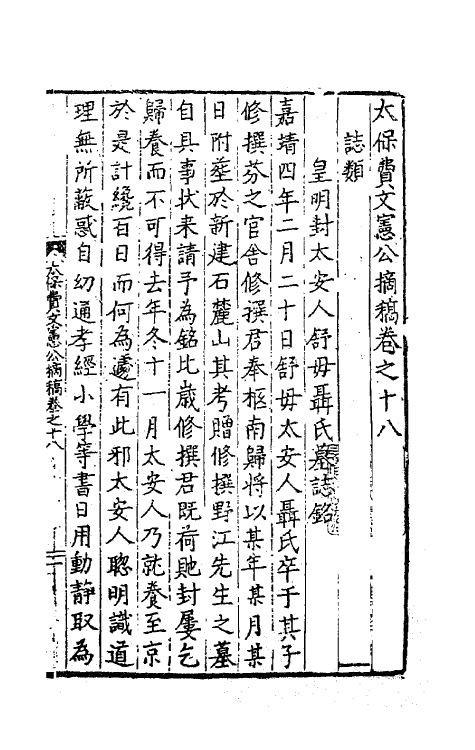 太保費文憲公摘稿卷之十八
誌類
皇明封太安人舒母聶氏墓誌銘
嘉靖四年二月二十日舒母太安人聶氏卒于其子
修撰芬之官舍修撰君奉柩南歸將以某年某月某
日附葬於新建石麓山其考贈修撰野江先生之墓
自具事状来請予為銘比歲修撰君既荷貤封屢乞
歸養而不可得去年冬十一月太安人乃就養至京
於是計纔百日而何為遽有此邪太安人聦明識道
理無所蔽惑自幼通孝經小學等書日用動靜取為
太保費文憲公摘稿卷之十八